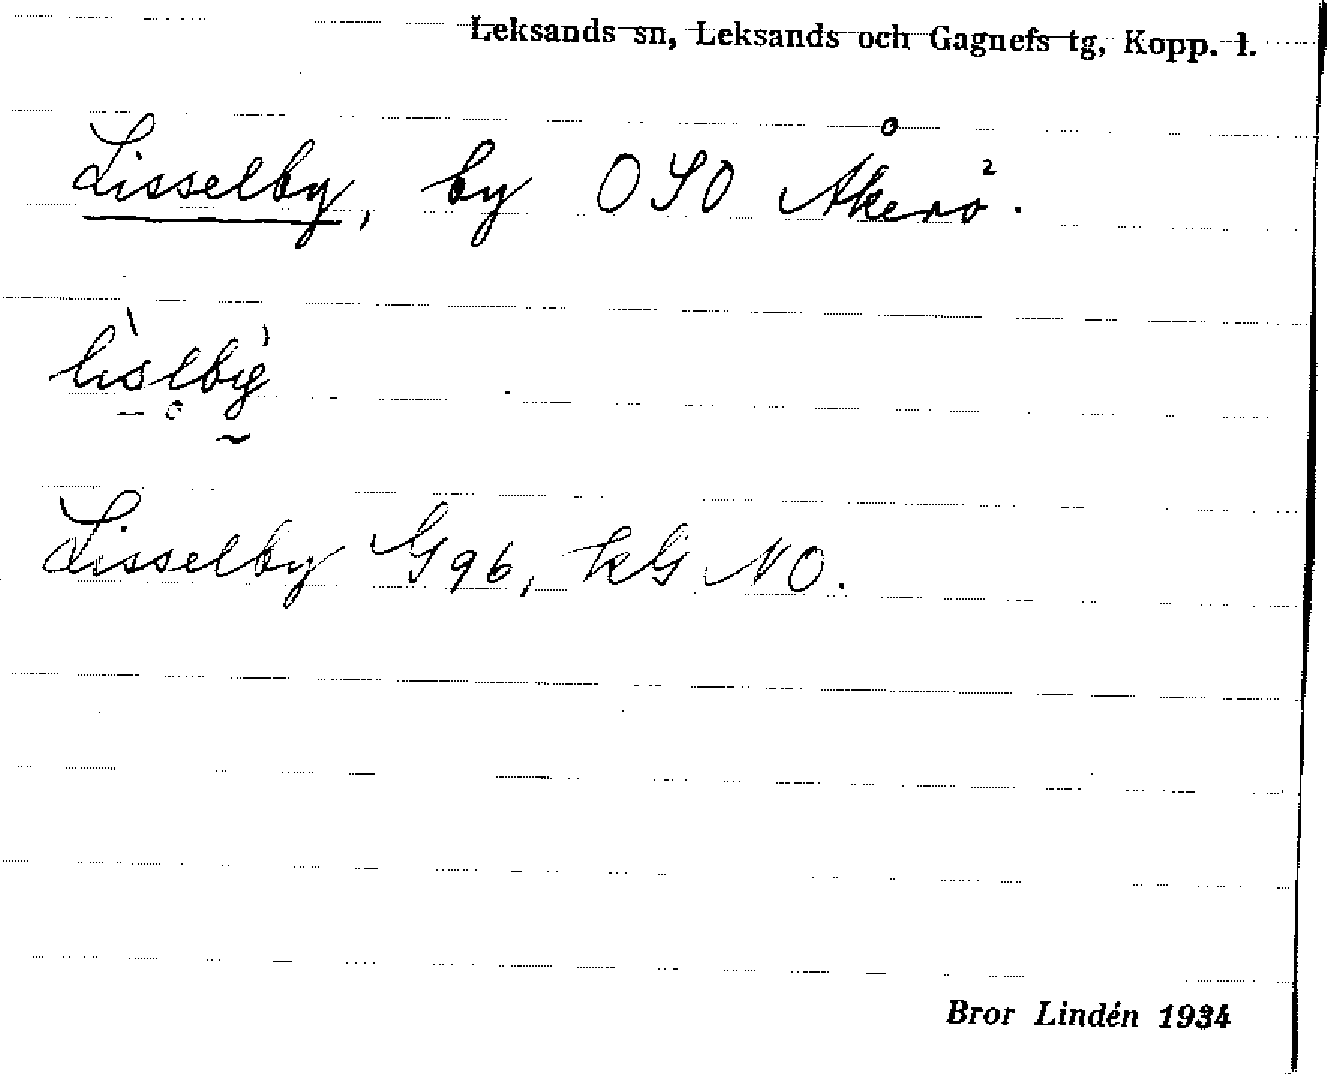 Leksands sn, Leksands och Gagnefs tg, Kopp. l.
Lisselby, by OSO Åkerö.
lìslbỳ̨
Lisselby G96, kG NO.
Bror Lindén 1934